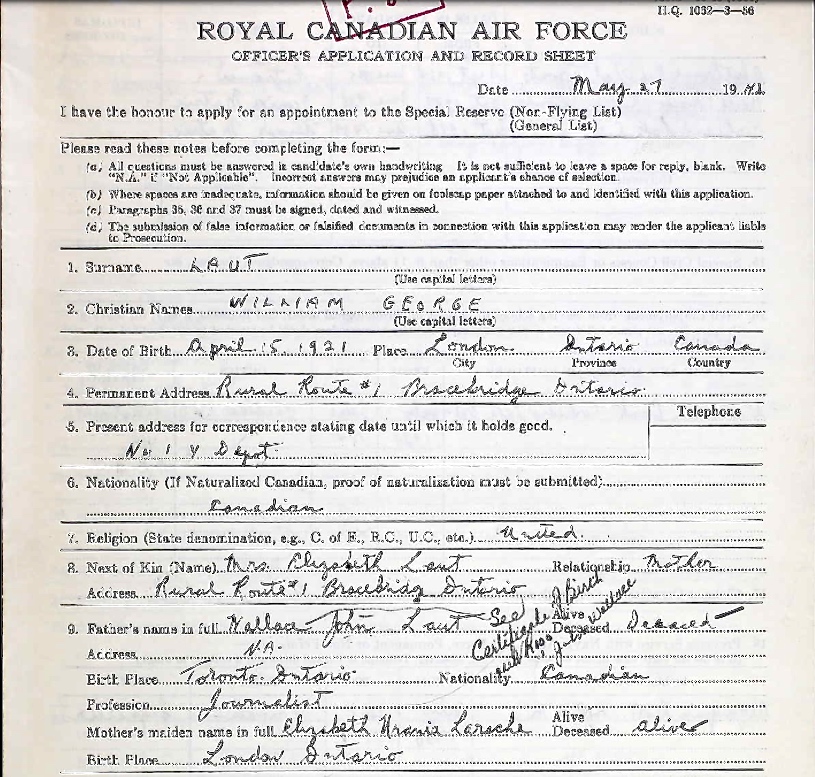 H.Q. 1032—3—86
ROYAL CANADIAN AIR FORCE
OFFICER'S APPLICATION AND RECORD SHEET
Date May 27 1941
I have the honour to apply for an appointment to the Special Reserve (Non-Flying List)
(General List)
Please read these notes before completing the form:—
(a) All questions must be answered in candidate's own handwriting It is not sufficient to leave a space for reply, blank. Write
"N.A." if "Not Applicable". Incorrect answers may prejudice an applicant's chance of selection.
(b) Where spaces are inadequate, information should be given on foolscap paper attached to and identified with this application.
(c) Paragraphs 35, 36 and 37 must be signed, dated and witnessed.
(d) The submission of false information or falsified documents in connection with this application may render the applicant liable
to Prosecution.
1. Surname LAUT
(Use capital letters)
2. Christian Names WILLIAM GEORGE
(Use capital letters)
3. Date of Birth April 15 1921 Place London Ontario Canada
City Province Country
4. Permanent Address Rural Route #1 Bracebridge Ontario
Telephone
5. Present address for correspondence stating date until which it holds good.
No 1 Y Depot
6. Nationality (If Naturalized Canadian, proof of naturalization must be submitted)
Canadian
7. Religion (State denomination, e.g., C. of E., R.C., U.C., etc.) United.
8. Next of Kin (Name) Mrs Elizabeth Laut Relationship Mother
Address Rural Route #1 Bracebridge Ontario
9. Father's name in full Wallace John Laut See Certificate Birch Wallace Alive Deceased Deceased
Address N.A.
Birth Place Toronto Ontario Nationality Canadian
Profession Journalist
Mother's maiden name in full Elizabeth Laroche Alive Deceased alive
Birth Place London Ontario